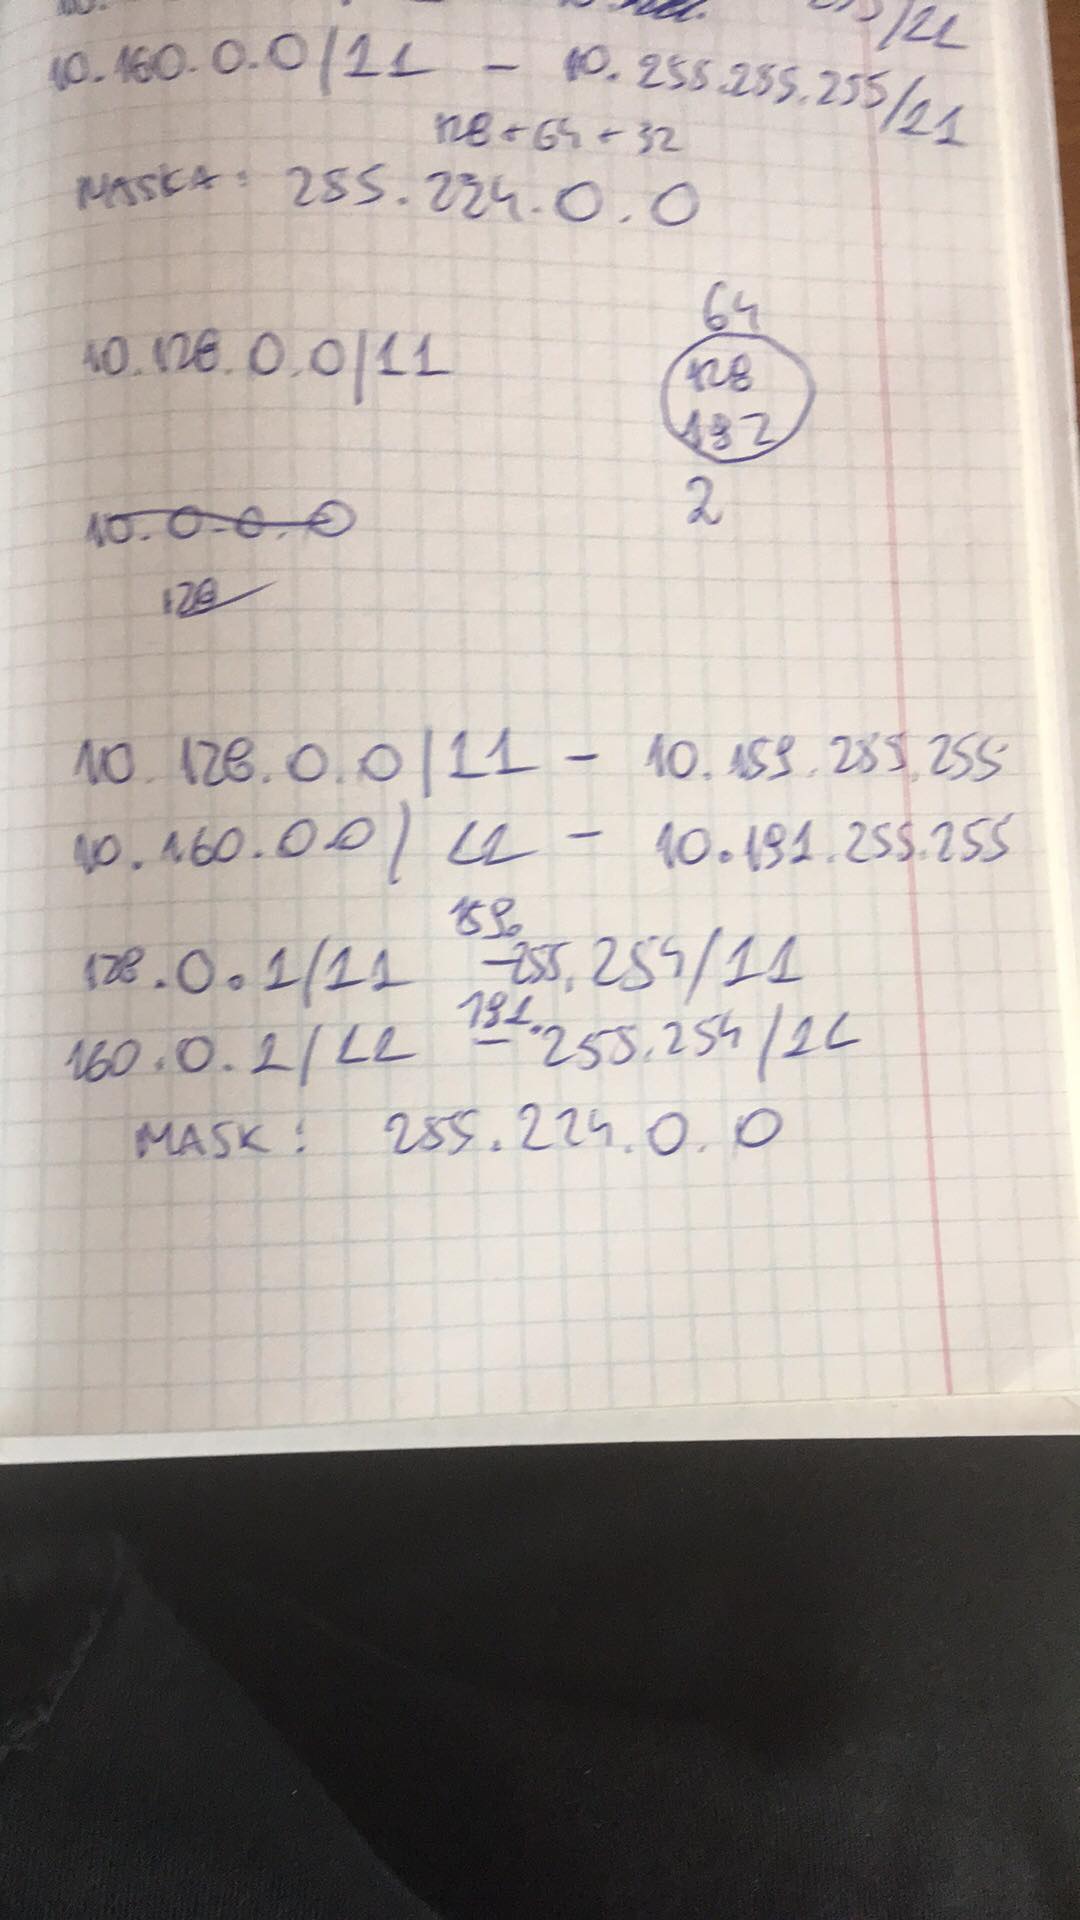 10.
/11
10.160.0.0/11 - 10.255.255.255/11
128+64+32
MASKA: 255.224.0.0
64
10.128.0.0/11
128
192
2
10.0.0.0
128
10.128.0.0/11 - 10.159.255.255
10.160.0.0/11 - 10.191.255.255
159.
128.0.1/11 -255.254/11
191.
160.0.1/11 - 255.254/11
MASK: 255.224.0.0